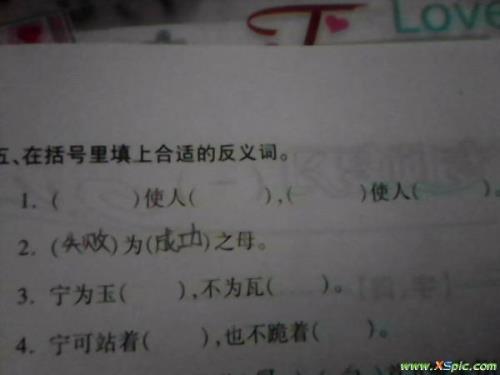 Love
五、在括号里填上合适的反义词。
1. (        )使人(        ),(        )使人(
2. (失败)为(成功)之母。
3. 宁为玉(        ),不为瓦(        )。
4. 宁可站着(        ),也不跪着(        )。
www.XSpic.com